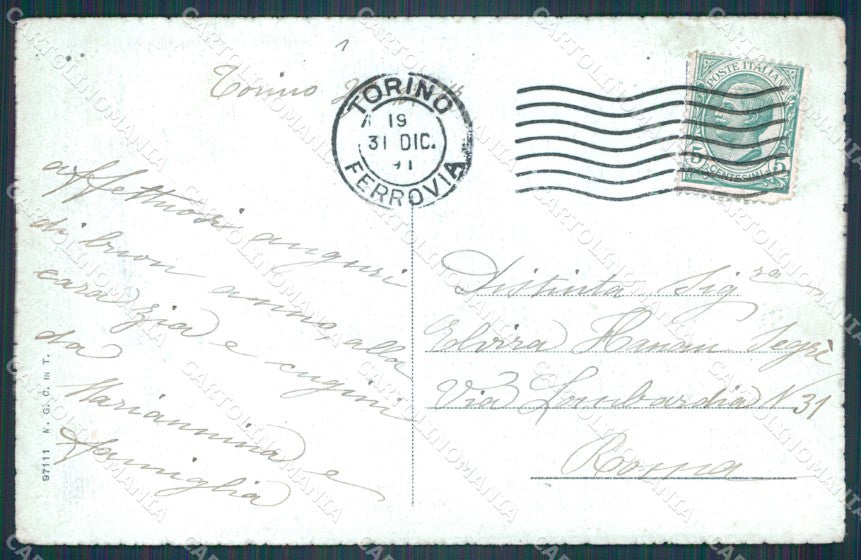 Torino
TORINO
19
31 DIC.
FERROVIA
POSTE ITALIANE
5 CENTESIMI 5
affettuosi auguri
di buon anno, alla
cara zia e cugini
da
Mariannina e
famiglia
Distinta Sig.ra
Elvira Segrè
Via Lombardia N 31
Roma
97111 N. G. C. IN T.
CARTOLINOMANIA